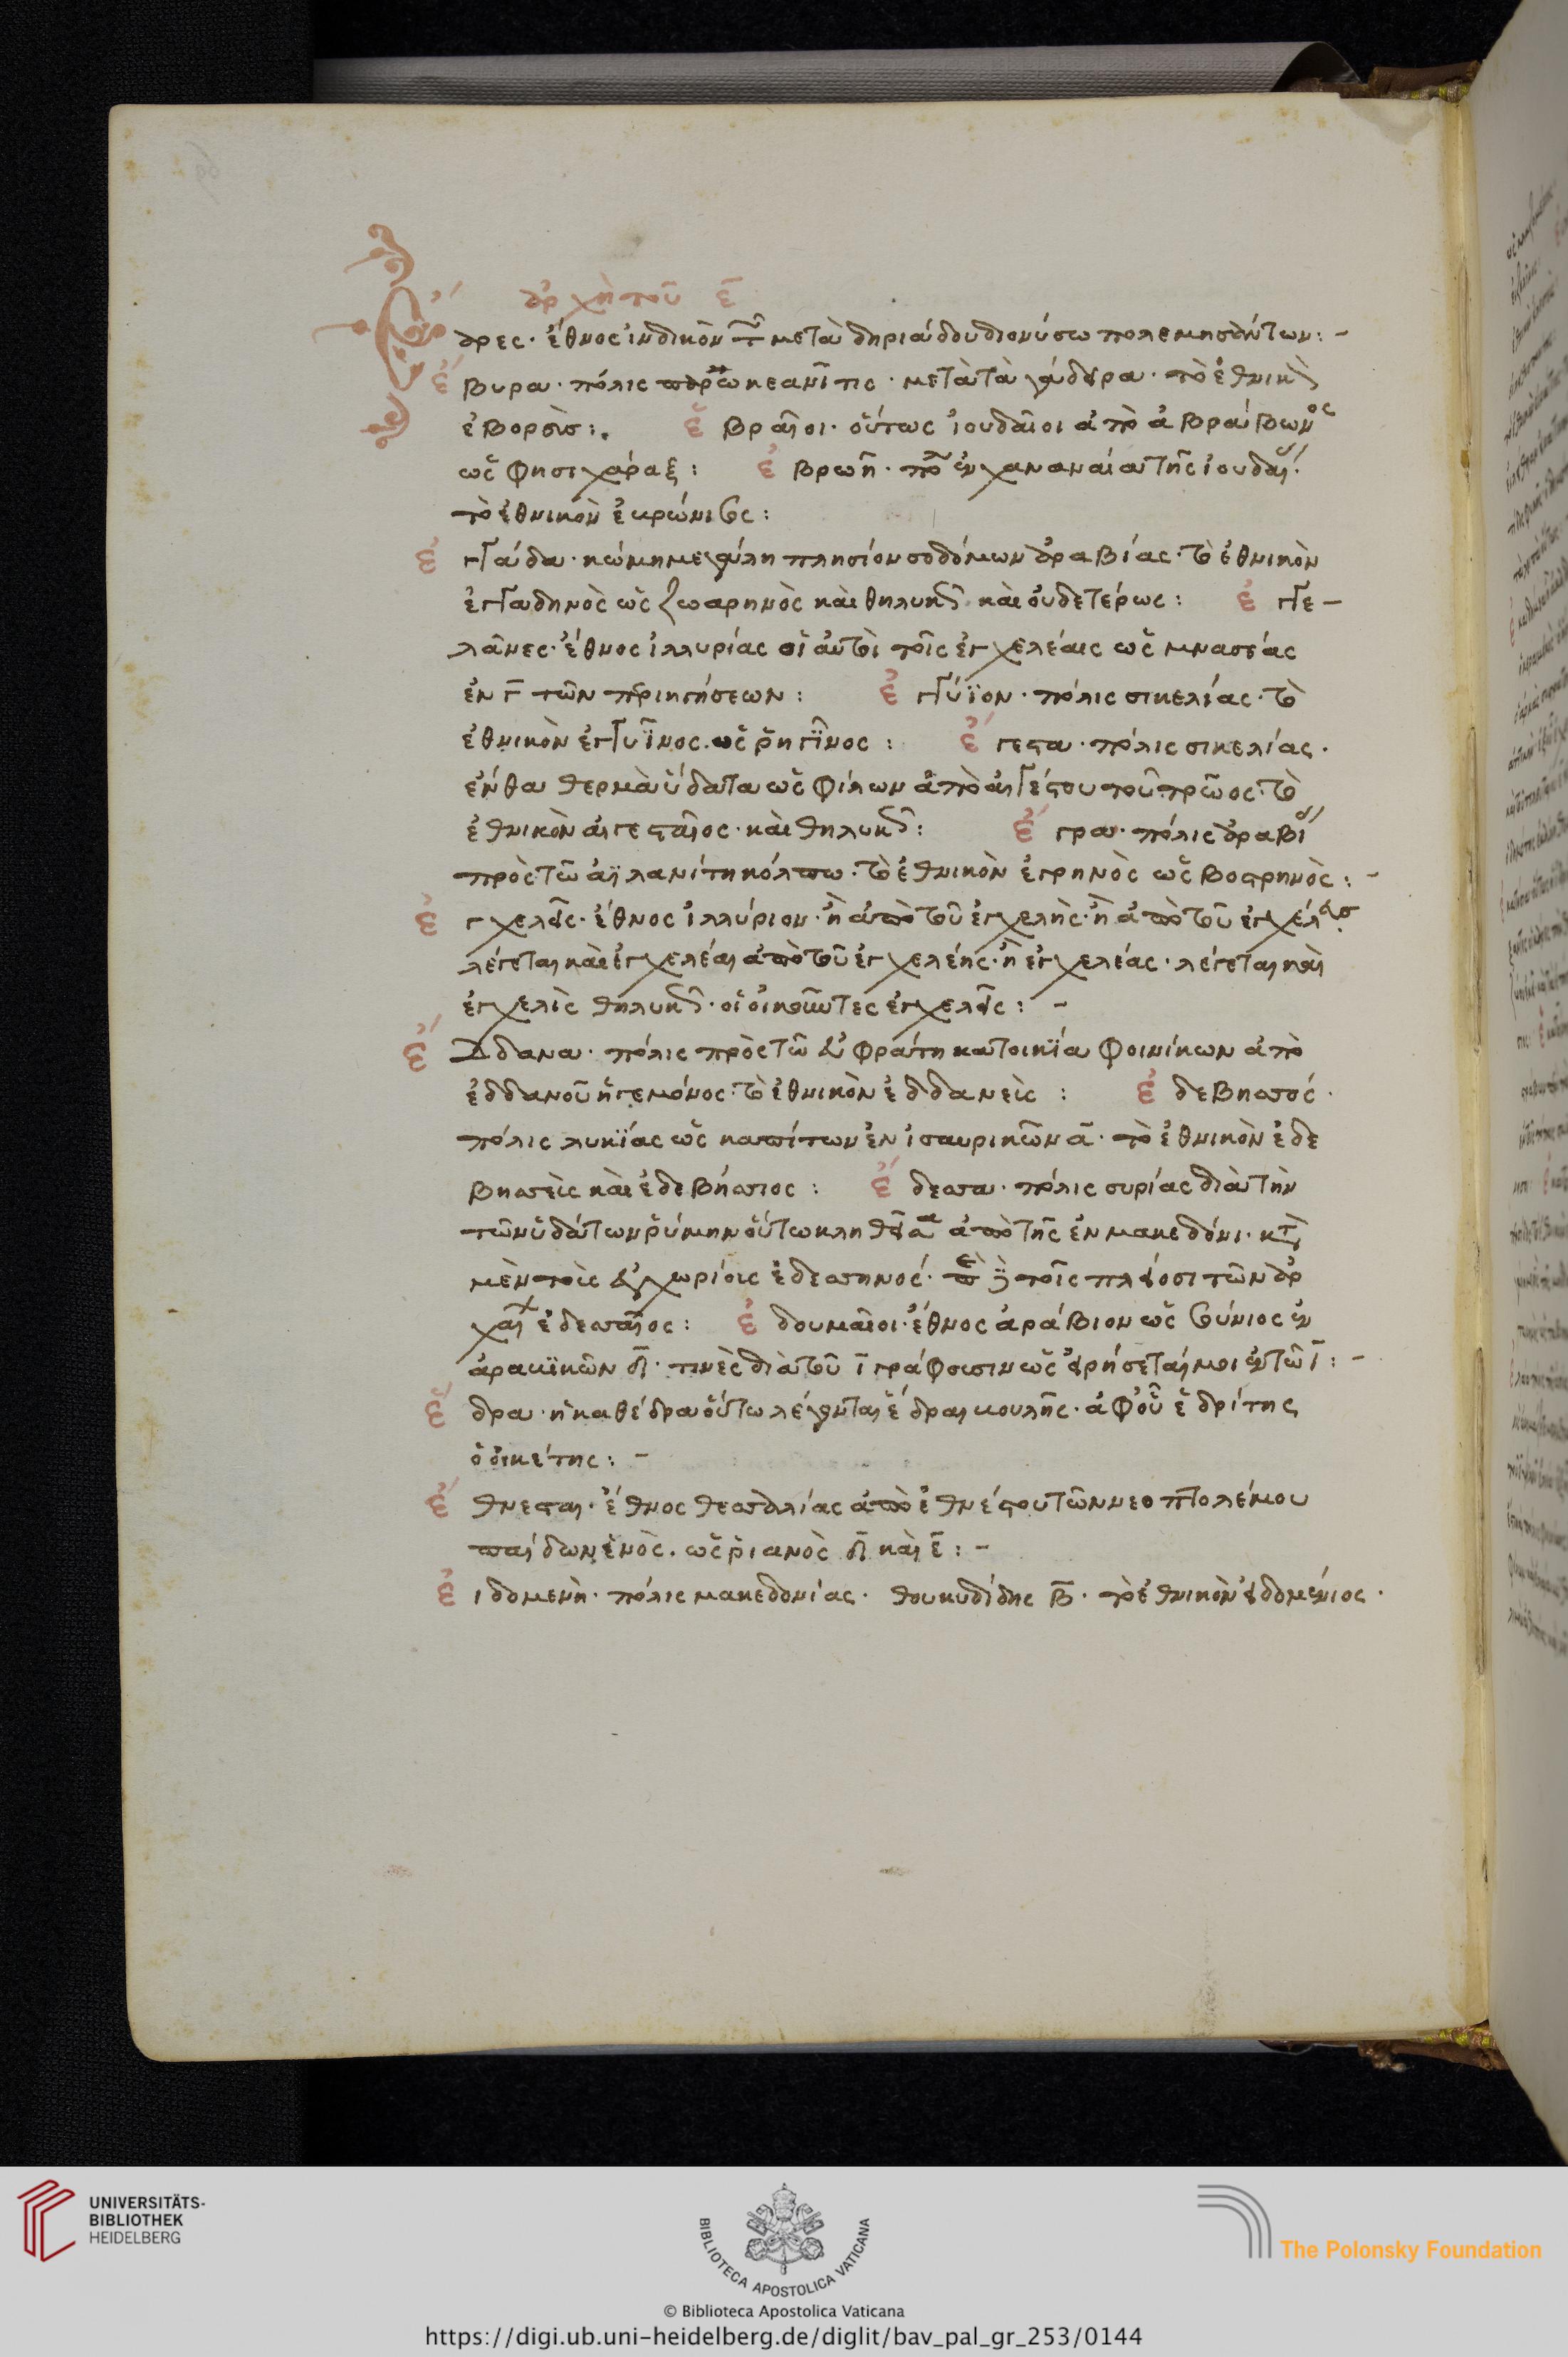 ἀρχὴ τοῦ ε̄
Ἔαρες· ἔθνος ἰνδικὸν μετὰ δηριάδου διονύσω πολεμησάντων:-
ἔβυρα· πόλις ὠκεανῖτις· μετὰ τὰ γάδειρα· τὸ ἐθνικὸν
ἐβορσὶσ:. ἑβραῖοι· οὕτως ἰουδαῖοι ἀπὸ ἀβραάμωνος
ὥς φησι χάραξ: ἐβρων· πό ἐν χαναναία τῆς ἰουδαί
τὸ ἐθνικὸν ἐκρώνιος:
ἐγγάδα· κώμη μεγάλη πλησίον σοδόμων ἀραβίας· τὸ ἐθνικὸν
ἐγγαδηνὸς ὡς ζωαρηνὸς καὶ θηλυκ καὶ οὐδετέρως: ἐγγε-
λᾶνες· ἔθνος ἰλλυρίας οἱ αὐτοὶ τοῖς ἐγχελέαις ὡς μνασέας
ἐν γ̄ τῶν περιηγήσεων: ἐγγύϊον· πόλις σικελίας· τὸ
ἐθνικὸν ἐγγυῖνος. ὡς ῥηγῖνος: ἔγεστα· πόλις σικελίας·
ἔνθα θερμὰ ὕδατα ὡς φίλων ἀπὸ αἰγέστου τοῦ τρωος· τὸ
ἐθνικὸν αἰγεσταῖος· καὶ θηλυκ: ἔγρα· πόλις ἀραβί
πρὸς τῶ αἰλανίτη κόλπω· τὸ ἐθνικὸν ἐγρηνὸς ὡς βοστρηνὸς:-
ἐγχελεῖς· ἔθνος ἰλλύριον· ἢ ἀπὸ τοῦ ἐγχελὴς· ἢ ἀπὸ τοῦ ἐγχέλεισ·
λέγεται καὶ ἐγχελέαι ἀπὸ τοῦ ἐγχελέης· ἢ ἐγχελέας· λέγεται καὶ
ἐγχελὶς θηλυκ· οἱ οἰκοῦντες ἐγχελεῖς:-
ἔδδανα· πόλις πρὸς τῶ εὐφράτη κατοικία φοινίκων ἀπὸ
ἐδδανοῦ ἡγεμόνος· τὸ ἐθνικὸν ἐδδανεὶς: ἐδεβησσό·
πόλις λυκίας ὡς καπίτων ἐν ἰσαυρικῶν ᾱ· τὸ ἐθνικὸν ἐδε
βησσεὶς καὶ ἐδεβήσσιος: ἔδεσσα· πόλις συρίας διὰ τὴν
τῶν ὑδάτων ῥύμην οὕτω κληθεῖσα ἀπὸ τῆς ἐν μακεδόνι· κτ
μὲν τοὶς ἐγχωρίοις ἐδεσσηνοσ· τοῖς πλείοσι τῶν ἀρ
χαί ἐδεσσαῖος: ἐδουμαῖοι· ἔθνος ἀράβιον ὡς οὐύνιος ἐν
ἀρακικῶν δ̄· τινὲς διὰ τοῦ ῑ γράφουσιν ὡς εἰρήσεται μοι ἐν τῶ ῑ:-
ἕδρα· ἡ καθέδρα οὕτω λέγονται ἕδραι κουλῆς· ἀφ' οὗ ἑδρίτης
ὁ οἰκέτης:-
ἔθνεσται· ἔθνος θεσσαλίας ἀπὸ ἐθνέστου τῶν νεοπτολέμου
παίδων ἑνὸς. ὡς ῥιανὸς δ̄ καὶ ε̄:-
ἐιδομενὴ· πόλις μακεδονίας· θουκυδίδης β̄· τὸ ἐθνικὸν εἰδομένιος·
UNIVERSITÄTS-
BIBLIOTHEK
HEIDELBERG
BIBLIOTECA APOSTOLICA VATICANA
The Polonsky Foundation
© Biblioteca Apostolica Vaticana
https://digi.ub.uni-heidelberg.de/diglit/bav_pal_gr_253/0144